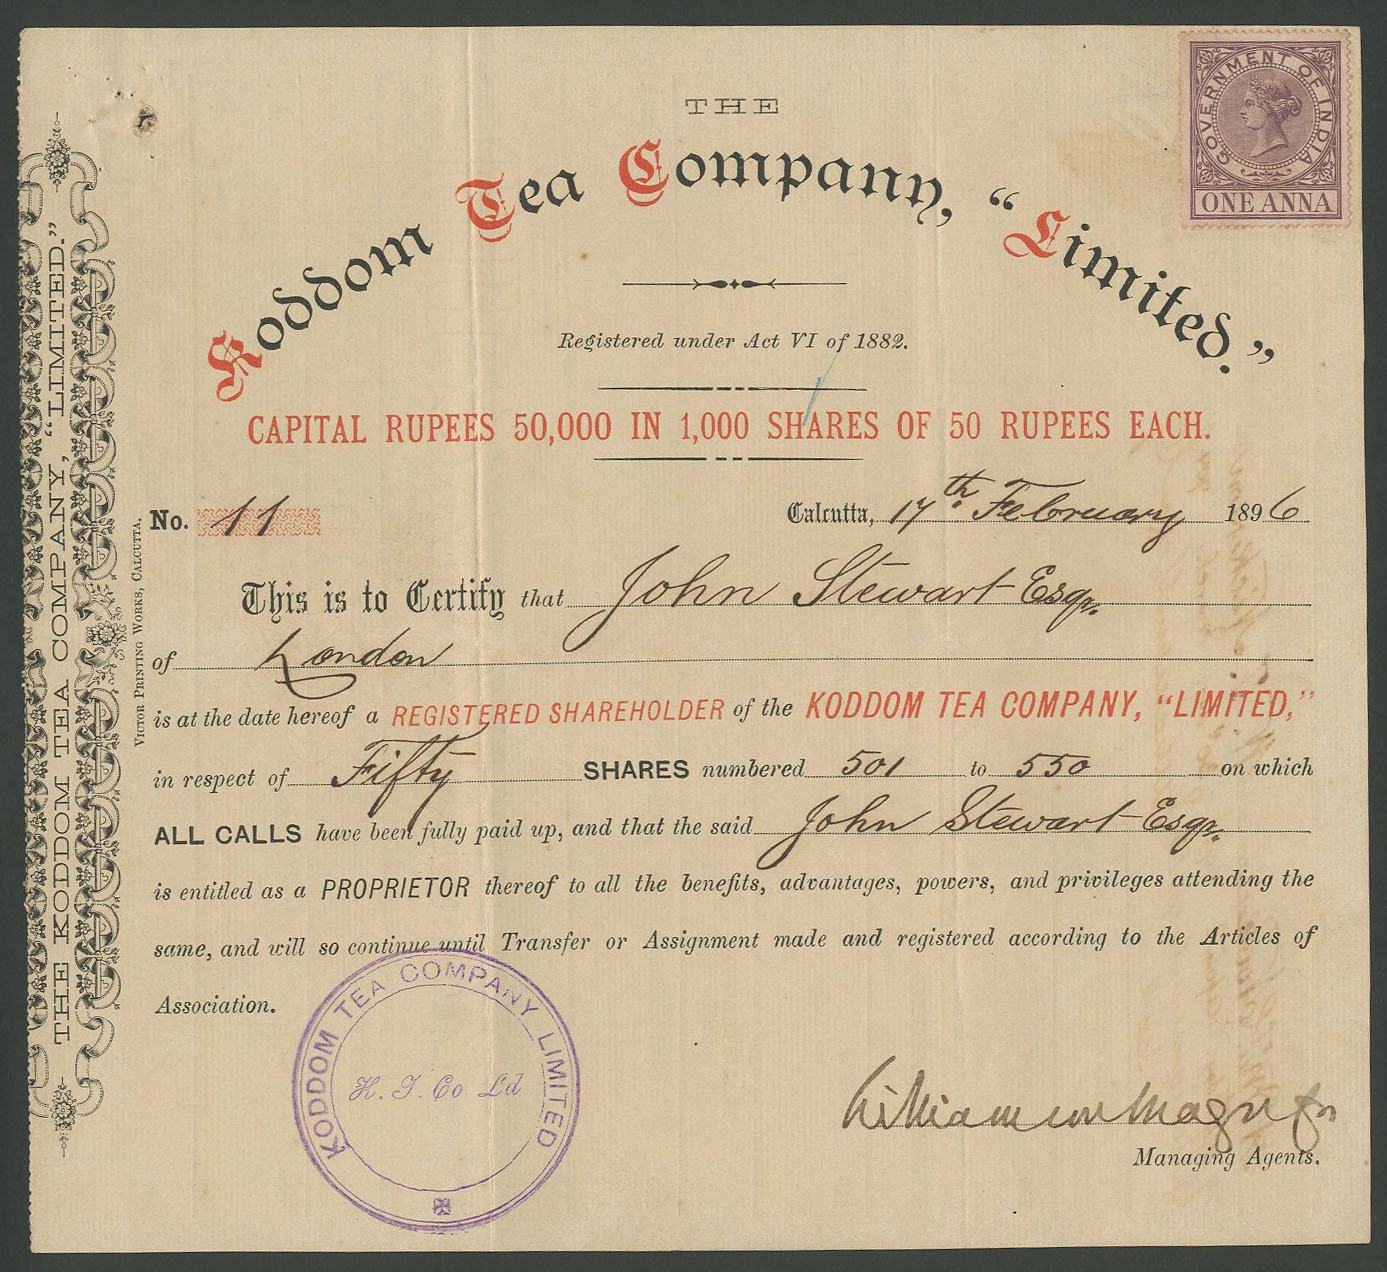 THE
Koddom Tea Company, "Limited."
GOVERNMENT OF INDIA
ONE ANNA
Registered under Act VI of 1882.
CAPITAL RUPEES 50,000 IN 1,000 SHARES OF 50 RUPEES EACH.
No. 11
Calcutta, 17th February 1896
This is to Certify that John Stewart Esqr.
of London
is at the date hereof a REGISTERED SHAREHOLDER of the KODDOM TEA COMPANY, "LIMITED,"
in respect of Fifty SHARES numbered 501 to 550 on which
ALL CALLS have been fully paid up, and that the said John Stewart Esqr.
is entitled as a PROPRIETOR thereof to all the benefits, advantages, powers, and privileges attending the
same, and will so continue until Transfer or Assignment made and registered according to the Articles of
Association.
KODDOM TEA COMPANY LIMITED
Co Ld
Managing Agents.
THE KODDOM TEA COMPANY, "LIMITED."
VICTOR PRINTING WORKS, CALCUTTA.